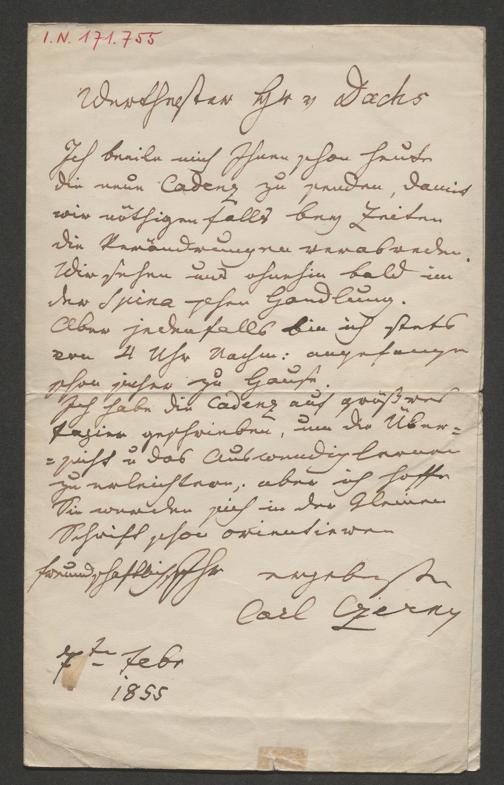 I.N. 171.755
Werthester Hr v Dachs
Ich beeile mich Ihnen schon heute
die neue Cadenz zu senden, damit
wir nöthigenfalls bey Zeiten
die Veränderungen verabreden.
Wir sehen uns ohnehin bald in
der Spina'schen Handlung.
Aber jedenfalls bin ich stets
von 4 Uhr Nachm: angefangen
schon sicher zu Hause.
Ich habe die Cadenz auf größeres
Papier geschrieben, um die Über=
=sicht u das Auswendiglernen
zu erleichtern, aber ich hoffe
Sie werden sich in der kleinen
Schrift schon orientieren
freundschaftlichst Ihr ergebenster
Carl Czerny
7te Febr
1855